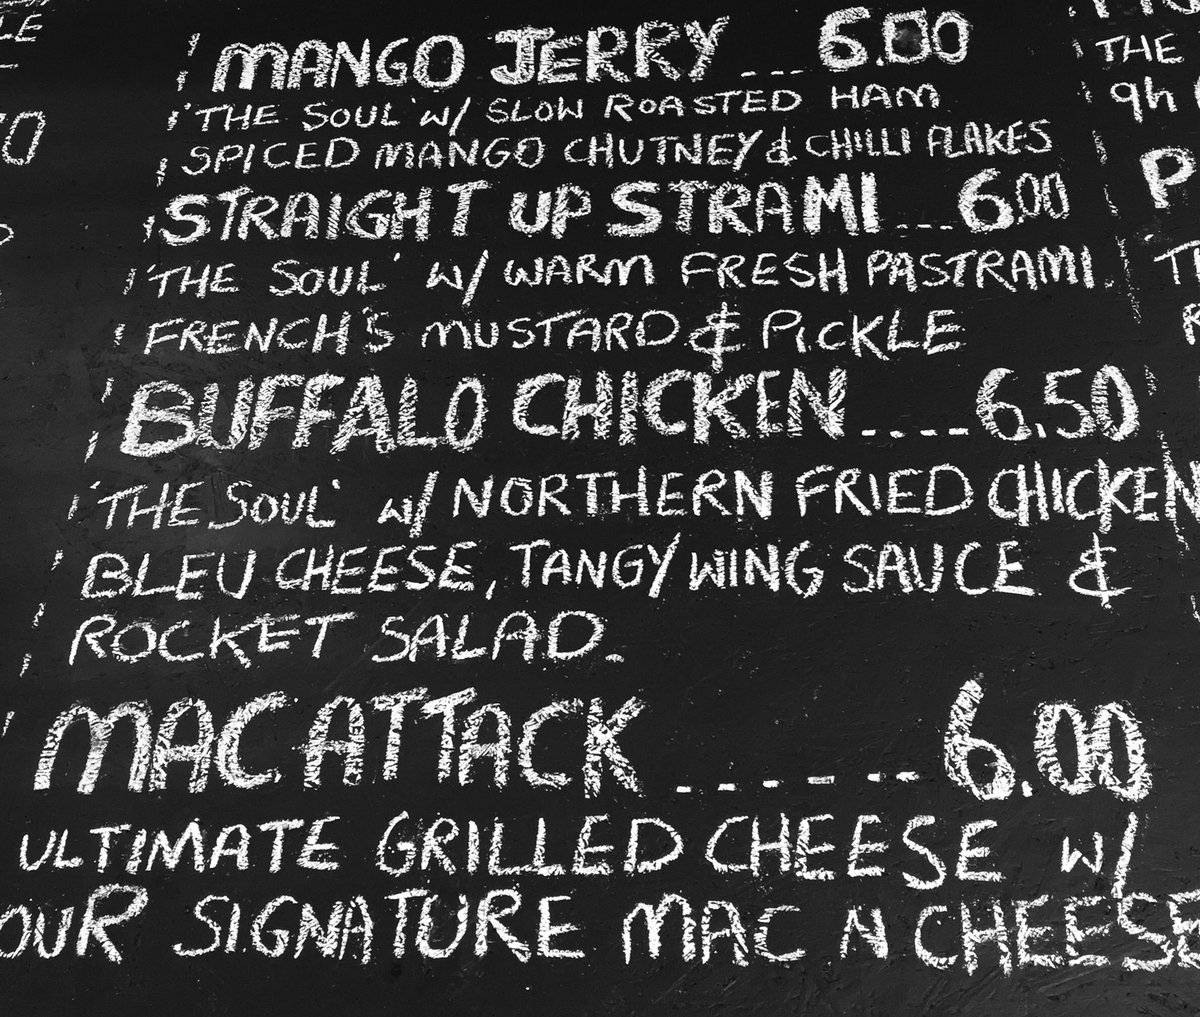 MANGO JERRY ... 6.00
'THE SOUL' W/ SLOW ROASTED HAM
SPICED MANGO CHUTNEY & CHILLI FLAKES
STRAIGHT UP STRAMI ... 6.00
'THE SOUL' W/ WARM FRESH PASTRAMI
FRENCH'S MUSTARD & PICKLE
BUFFALO CHICKEN .... 6.50
'THE SOUL' W/ NORTHERN FRIED CHICKEN
BLEU CHEESE, TANGY WING SAUCE &
ROCKET SALAD.
MAC ATTACK ...... 6.00
ULTIMATE GRILLED CHEESE W/
OUR SIGNATURE MAC N CHEESE
THE
9h